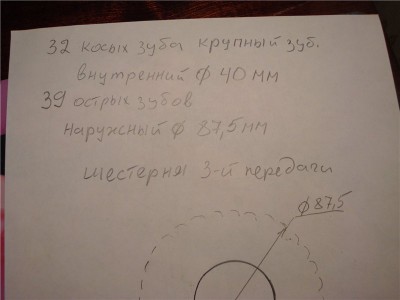 32 косых зуба крупный зуб.
внутренний ф 40 мм
39 острых зубов
наружный ф 87,5 мм
шестерня 3-й передачи
ф 87,5